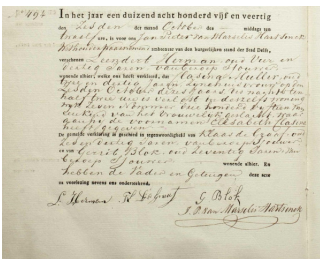 No 492
In het jaar een duizend acht honderd vijf en veertig
den zesden der maand October des middags ten
twaalf ure, is voor ons Jan Pieter van Marselis Hartsinck
Wethouder
ambtenaar van den burgerlijken stand der Stad Delft,
verschenen Leendert Herman oud vier en
dertig Jaren van beroep Sjouwer
wonende alhier, welke ons heeft verklaard, dat Muller, oud
en dertig Jaren zijne huisvrouw op den
zesden October dezes jaars des nachts ten
half twee ure is verlost in derzelver woning
van een kind
van het vrouwelijk geslacht, waar
aan hij de voornamen Elisabeth
heeft gegeven
De gemelde verklaring is geschied in tegenwoordigheid van Klaas de Graaf oud
zes en dertig Jaren van beroep
en van Gerrit Blok oud zeventig Jaren van
beroep Sjouwer wonende alhier. En
hebben de Vader en Getuigen deze acte
na voorlezing nevens ons onderteekend.
L. Herman K de Graaf G Blok
J. P. van Marselis Hartsinck